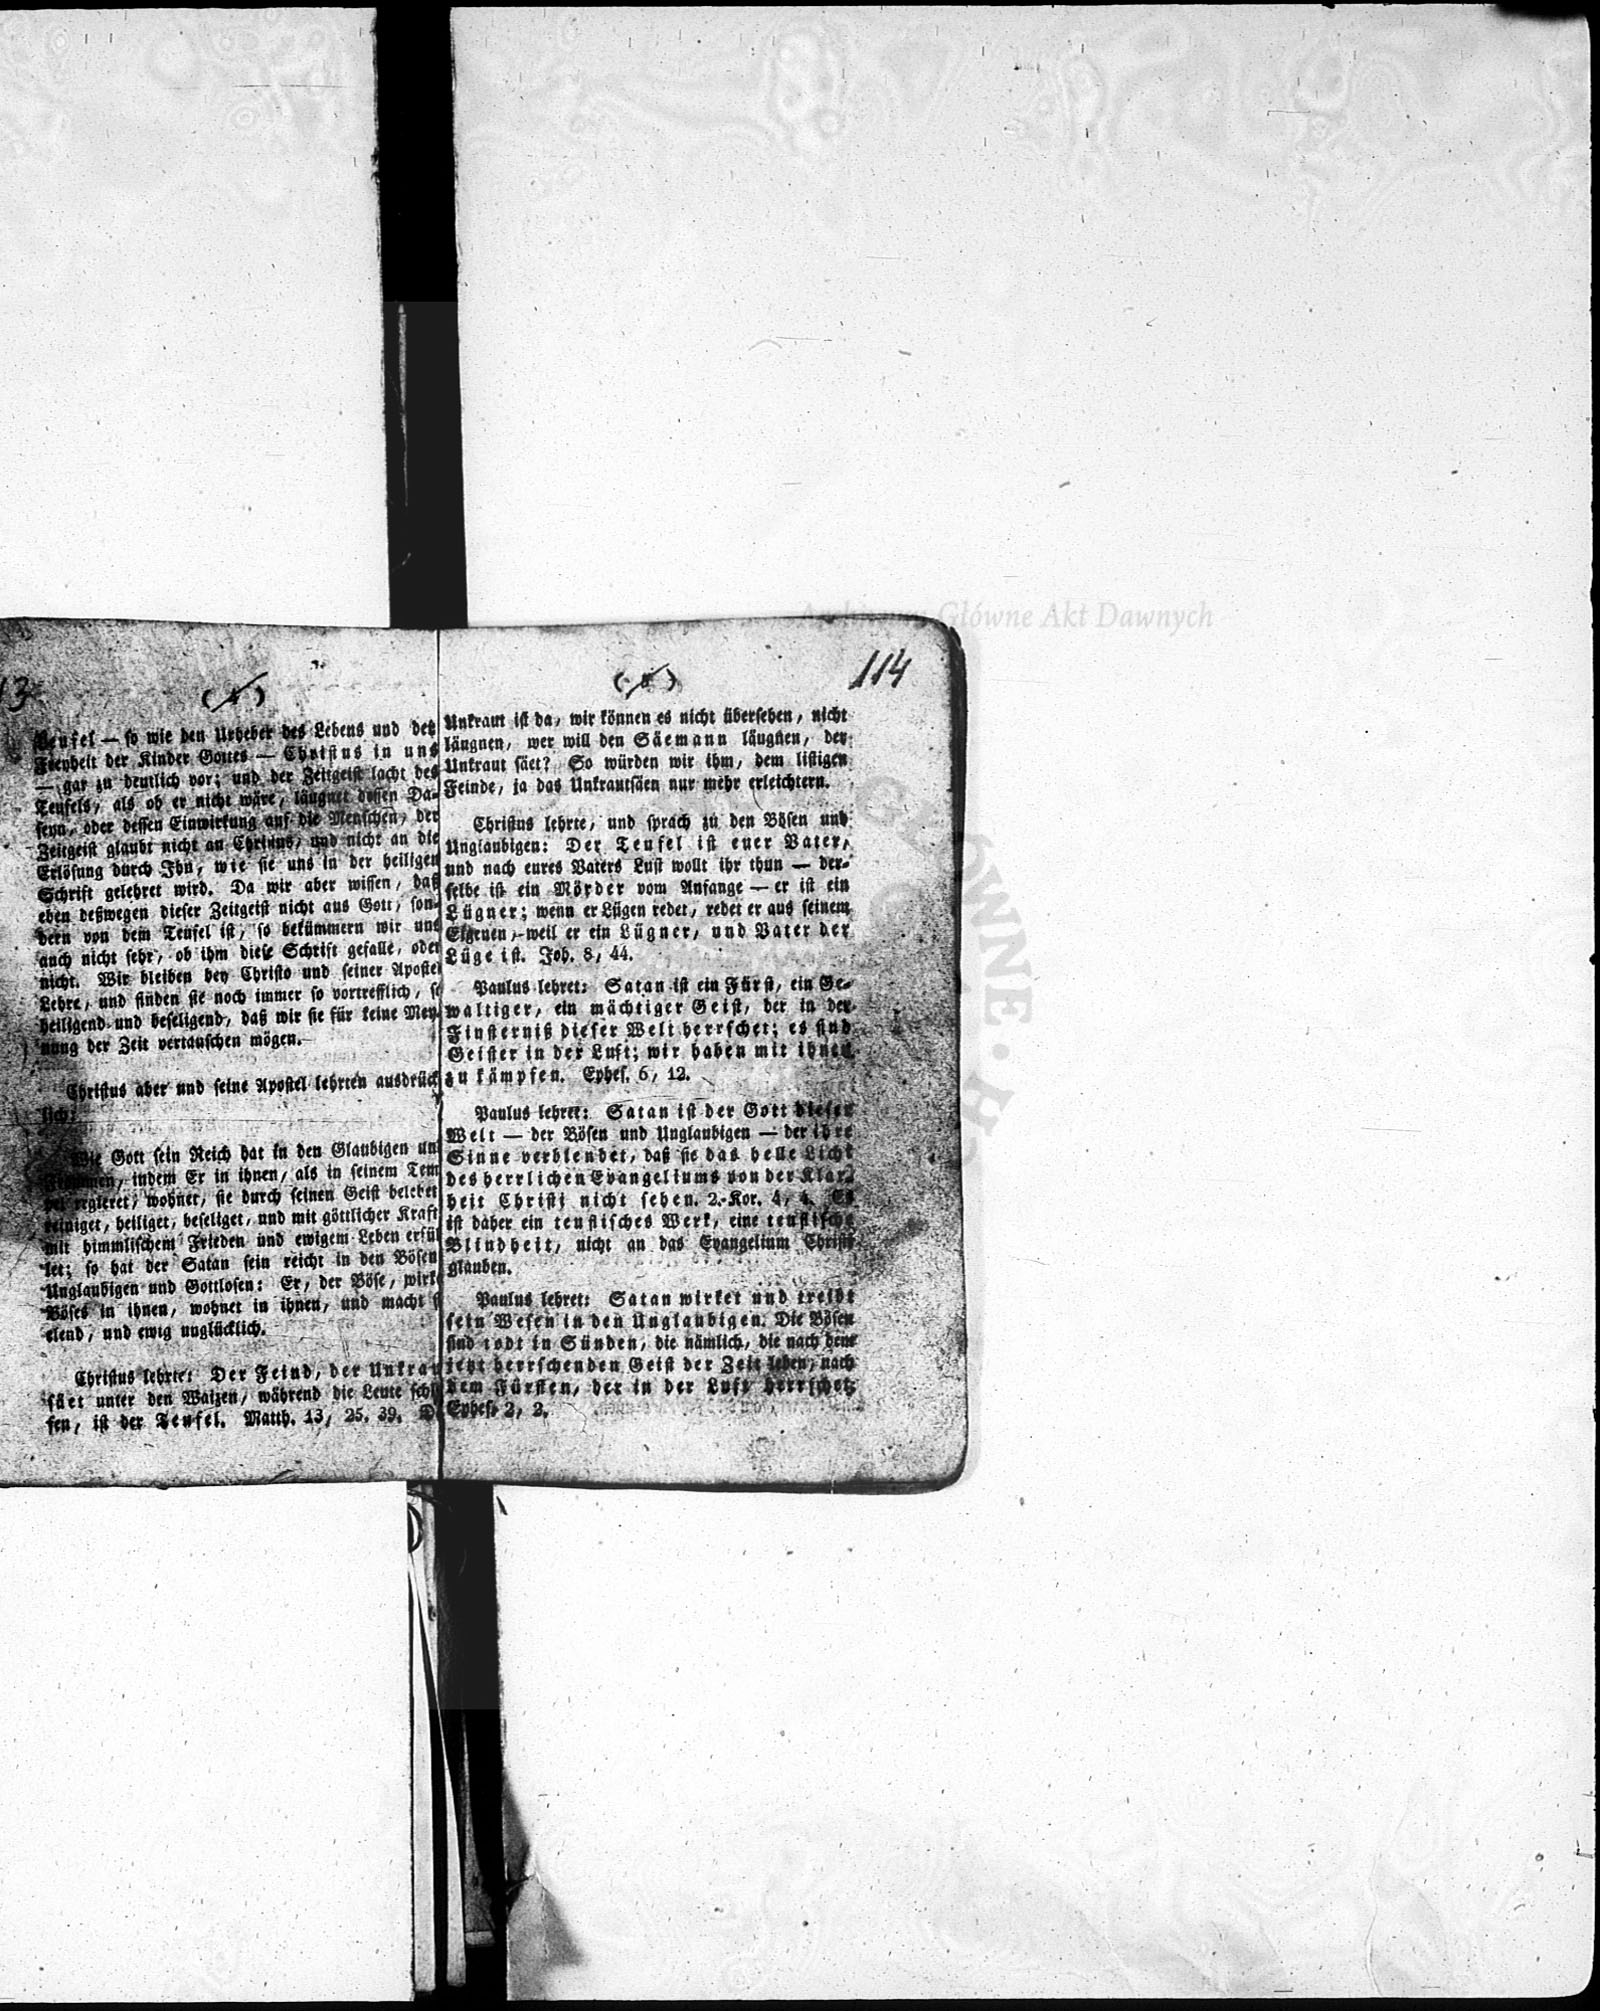 13
( 4 )
Teufel — so wie den Urheber des Lebens und der
Freyheit der Kinder Gottes — Christus in uns
— gar zu deutlich vor; und der Zeitgeist lacht des
Teufels, als ob er nicht wäre, läugnet dessen Da-
seyn, oder dessen Einwirkung auf die Menschen, der
Zeitgeist glaubt nicht an Christus, und nicht an die
Erlösung durch Ihn, wie sie uns in der heiligen
Schrift gelehret wird. Da wir aber wissen, daß
eben deßwegen dieser Zeitgeist nicht aus Gott, son-
dern von dem Teufel ist, so bekümmern wir uns
auch nicht sehr, ob ihm diese Schrift gefalle, oder
nicht. Wir bleiben bey Christo und seiner Apostel
Lehre, und finden sie noch immer so vortrefflich, so
heiligend und beseligend, daß wir sie für keine Mey-
nung der Zeit vertauschen mögen.
Christus aber und seine Apostel lehrten ausdrück-
lich:
Wie Gott sein Reich hat in den Glaubigen un
Frommen, indem Er in ihnen, als in seinem Tem
pel regieret, wohnet, sie durch seinen Geist belebet
reiniget, heiliget, beseliget, und mit göttlicher Kraft
mit himmlischem Frieden und ewigem Leben erfül
let; so hat der Satan sein reicht in den Bösen
Unglaubigen und Gottlosen: Er, der Böse, wirke
Böses in ihnen, wohnet in ihnen, und macht s
elend, und ewig unglücklich.
Christus lehrte: Der Feind, der Unkrau
säet unter den Waizen, während die Leute schl
fen, ist der Teufel. Matth. 13, 25. 39. D
114
Unkraut ist da, wir können es nicht übersehen, nicht
läugnen, wer will den Säemann läugnen, der
Unkraut säet? So würden wir ihm, dem listigen
Feinde, ja das Unkrautsäen nur mehr erleichtern.
Christus lehrte, und sprach zu den Bösen und
Unglaubigen: Der Teufel ist euer Vater,
und nach eures Vaters Lust wollt ihr thun — der-
selbe ist ein Mörder vom Anfange — er ist ein
Lügner; wenn er Lügen redet, redet er aus seinem
Eigenen, weil er ein Lügner, und Vater der
Lüge ist. Joh. 8, 44.
Paulus lehret: Satan ist ein Fürst, ein Ge-
waltiger, ein mächtiger Geist, der in der
Finsterniß dieser Welt herrschet; es sind
Geister in der Luft; wir haben mit ihnen
zu kämpfen. Ephes. 6, 12.
Paulus lehret: Satan ist der Gott dieser
Welt — der Bösen und Unglaubigen — der ihre
Sinne verblendet, daß sie das helle Licht
des herrlichen Evangeliums von der Klar-
heit Christi nicht sehen. 2. Kor. 4, 4. Es
ist daher ein teuflisches Werk, eine teuflische
Blindheit, nicht an das Evangelium Christi
glauben.
Paulus lehret: Satan wirket und treibt
sein Wesen in den Unglaubigen. Die Bösen
sind todt in Sünden, die nämlich, die nach dem
jetzt herrschenden Geist der Zeit leben, nach
dem Fürsten, der in der Luft herrschet.
Ephes. 2, 2.
Archiwum Główne Akt Dawnych